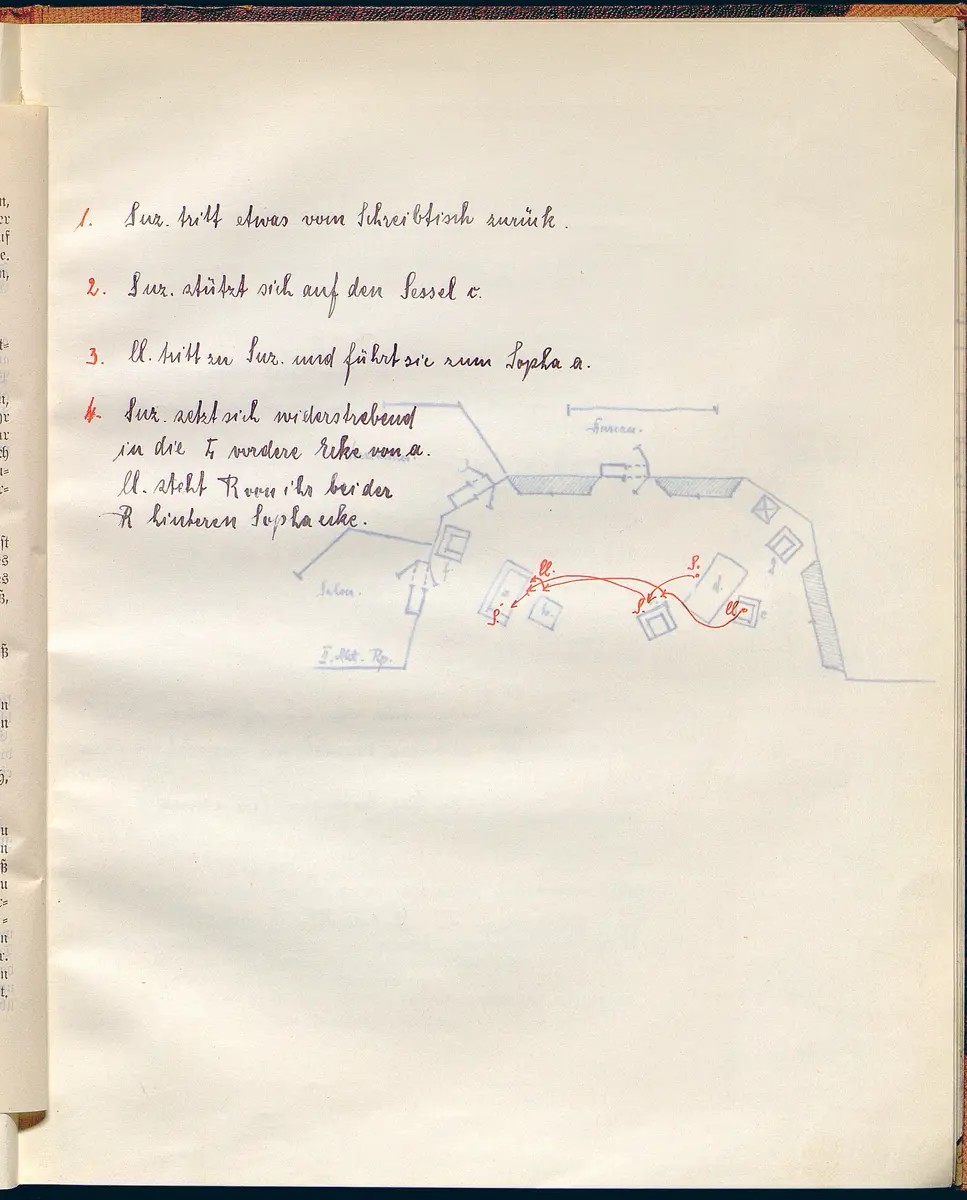 1. Suz. tritt etwas vom Schreibtisch zurück.
2. Suz. stützt sich auf den Sessel c.
3. U. tritt zu Suz. und führt sie zum Sopha a.
4. Suz. setzt sich widerstrebend
in die L vordere Ecke von a.
U. steht R von ihr bei der
R hinteren Sophaecke.
Bureau.
Salon.
II.
a
b.
d.
e
f
U.
S.
S.
S.
U.